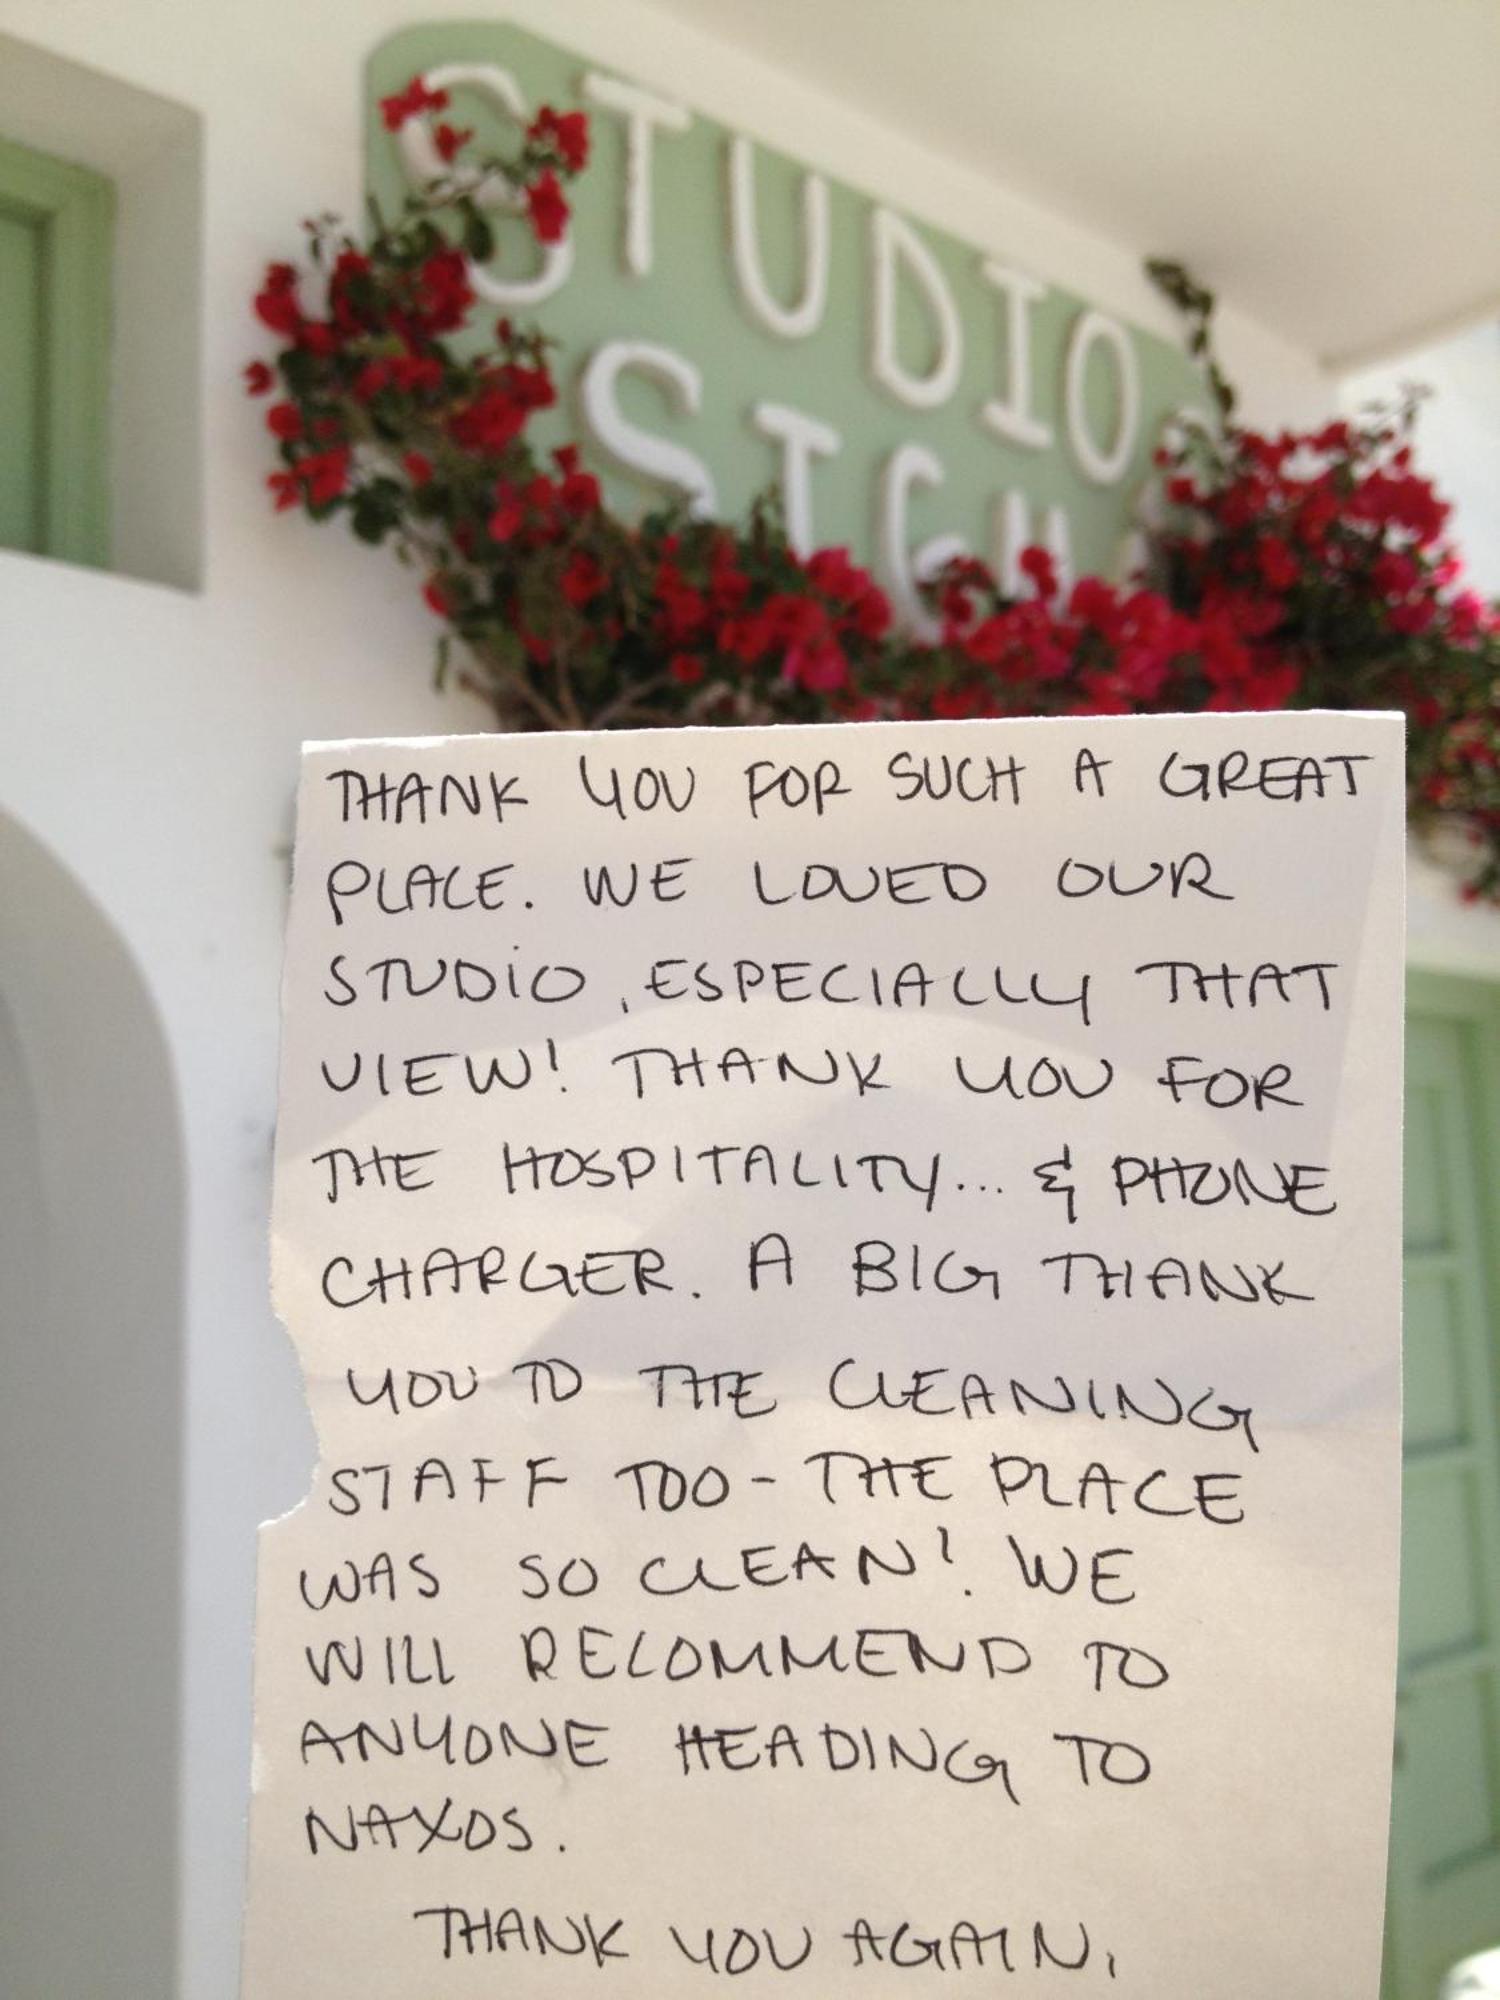 STUDIO
THANK YOU FOR SUCH A GREAT
PLACE. WE LOVED OUR
STUDIO, ESPECIALLY THAT
VIEW! THANK YOU FOR
THE HOSPITALITY... & PHONE
CHARGER. A BIG THANK
YOU TO THE CLEANING
STAFF TOO - THE PLACE
WAS SO CLEAN! WE
WILL RECOMMEND TO
ANYONE HEADING TO
NAXOS.
THANK YOU AGAIN,